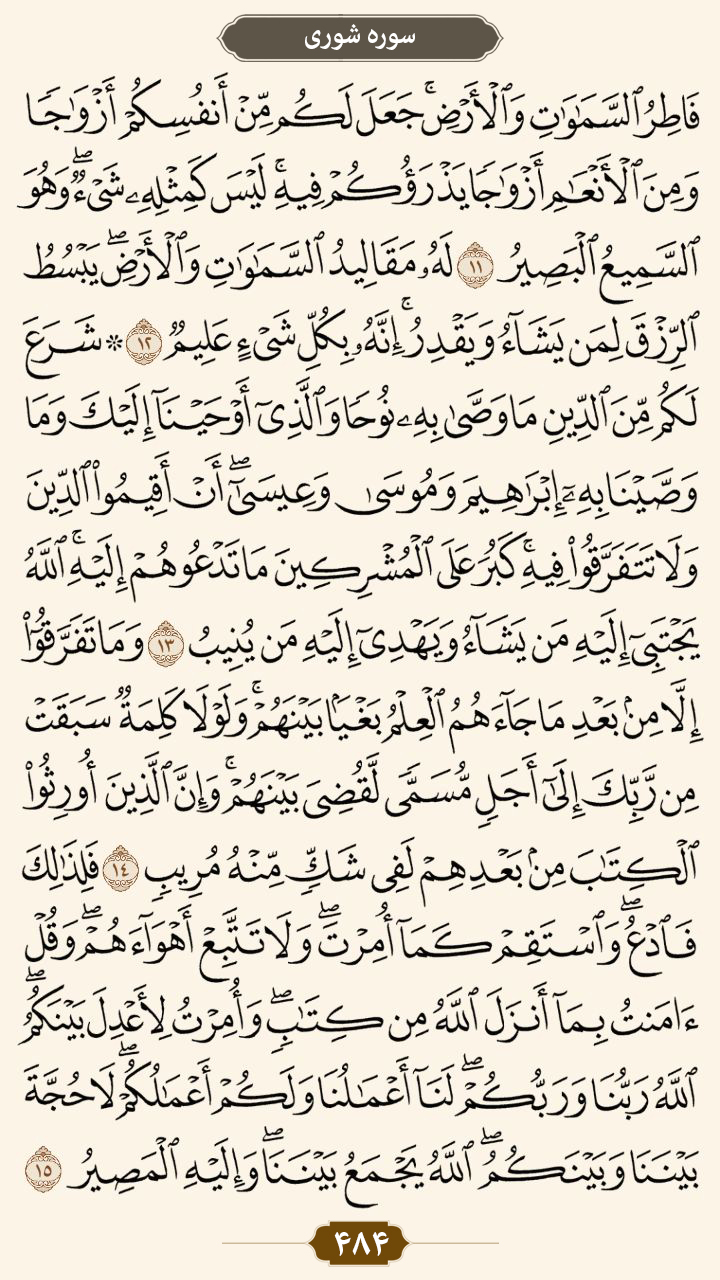 سوره شوری
فَاطِرُ ٱلسَّمَٰوَٰتِ وَٱلْأَرْضِۚ جَعَلَ لَكُم مِّنْ أَنفُسِكُمْ أَزْوَٰجًا
وَمِنَ ٱلْأَنْعَٰمِ أَزْوَٰجًا يَذْرَؤُكُمْ فِيهِۚ لَيْسَ كَمِثْلِهِۦ شَىْءٌۖ وَهُوَ
ٱلسَّمِيعُ ٱلْبَصِيرُ ١١ لَهُۥ مَقَالِيدُ ٱلسَّمَٰوَٰتِ وَٱلْأَرْضِۖ يَبْسُطُ
ٱلرِّزْقَ لِمَن يَشَآءُ وَيَقْدِرُۚ إِنَّهُۥ بِكُلِّ شَىْءٍ عَلِيمٌ ١٢ ۞ شَرَعَ
لَكُم مِّنَ ٱلدِّينِ مَا وَصَّىٰ بِهِۦ نُوحًا وَٱلَّذِىٓ أَوْحَيْنَآ إِلَيْكَ وَمَا
وَصَّيْنَا بِهِۦٓ إِبْرَٰهِيمَ وَمُوسَىٰ وَعِيسَىٰٓۖ أَنْ أَقِيمُوا۟ ٱلدِّينَ
وَلَا تَتَفَرَّقُوا۟ فِيهِۚ كَبُرَ عَلَى ٱلْمُشْرِكِينَ مَا تَدْعُوهُمْ إِلَيْهِۚ ٱللَّهُ
يَجْتَبِىٓ إِلَيْهِ مَن يَشَآءُ وَيَهْدِىٓ إِلَيْهِ مَن يُنِيبُ ١٣ وَمَا تَفَرَّقُوٓا۟
إِلَّا مِنۢ بَعْدِ مَا جَآءَهُمُ ٱلْعِلْمُ بَغْيًۢا بَيْنَهُمْۚ وَلَوْلَا كَلِمَةٌ سَبَقَتْ
مِن رَّبِّكَ إِلَىٰٓ أَجَلٍ مُّسَمًّى لَّقُضِىَ بَيْنَهُمْۚ وَإِنَّ ٱلَّذِينَ أُورِثُوا۟
ٱلْكِتَٰبَ مِنۢ بَعْدِهِمْ لَفِى شَكٍّ مِّنْهُ مُرِيبٍ ١٤ فَلِذَٰلِكَ
فَٱدْعُۖ وَٱسْتَقِمْ كَمَآ أُمِرْتَۖ وَلَا تَتَّبِعْ أَهْوَآءَهُمْۖ وَقُلْ
ءَامَنتُ بِمَآ أَنزَلَ ٱللَّهُ مِن كِتَٰبٍۖ وَأُمِرْتُ لِأَعْدِلَ بَيْنَكُمُۖ
ٱللَّهُ رَبُّنَا وَرَبُّكُمْۖ لَنَآ أَعْمَٰلُنَا وَلَكُمْ أَعْمَٰلُكُمْۖ لَا حُجَّةَ
بَيْنَنَا وَبَيْنَكُمُۖ ٱللَّهُ يَجْمَعُ بَيْنَنَاۖ وَإِلَيْهِ ٱلْمَصِيرُ ١٥
۴۸۴